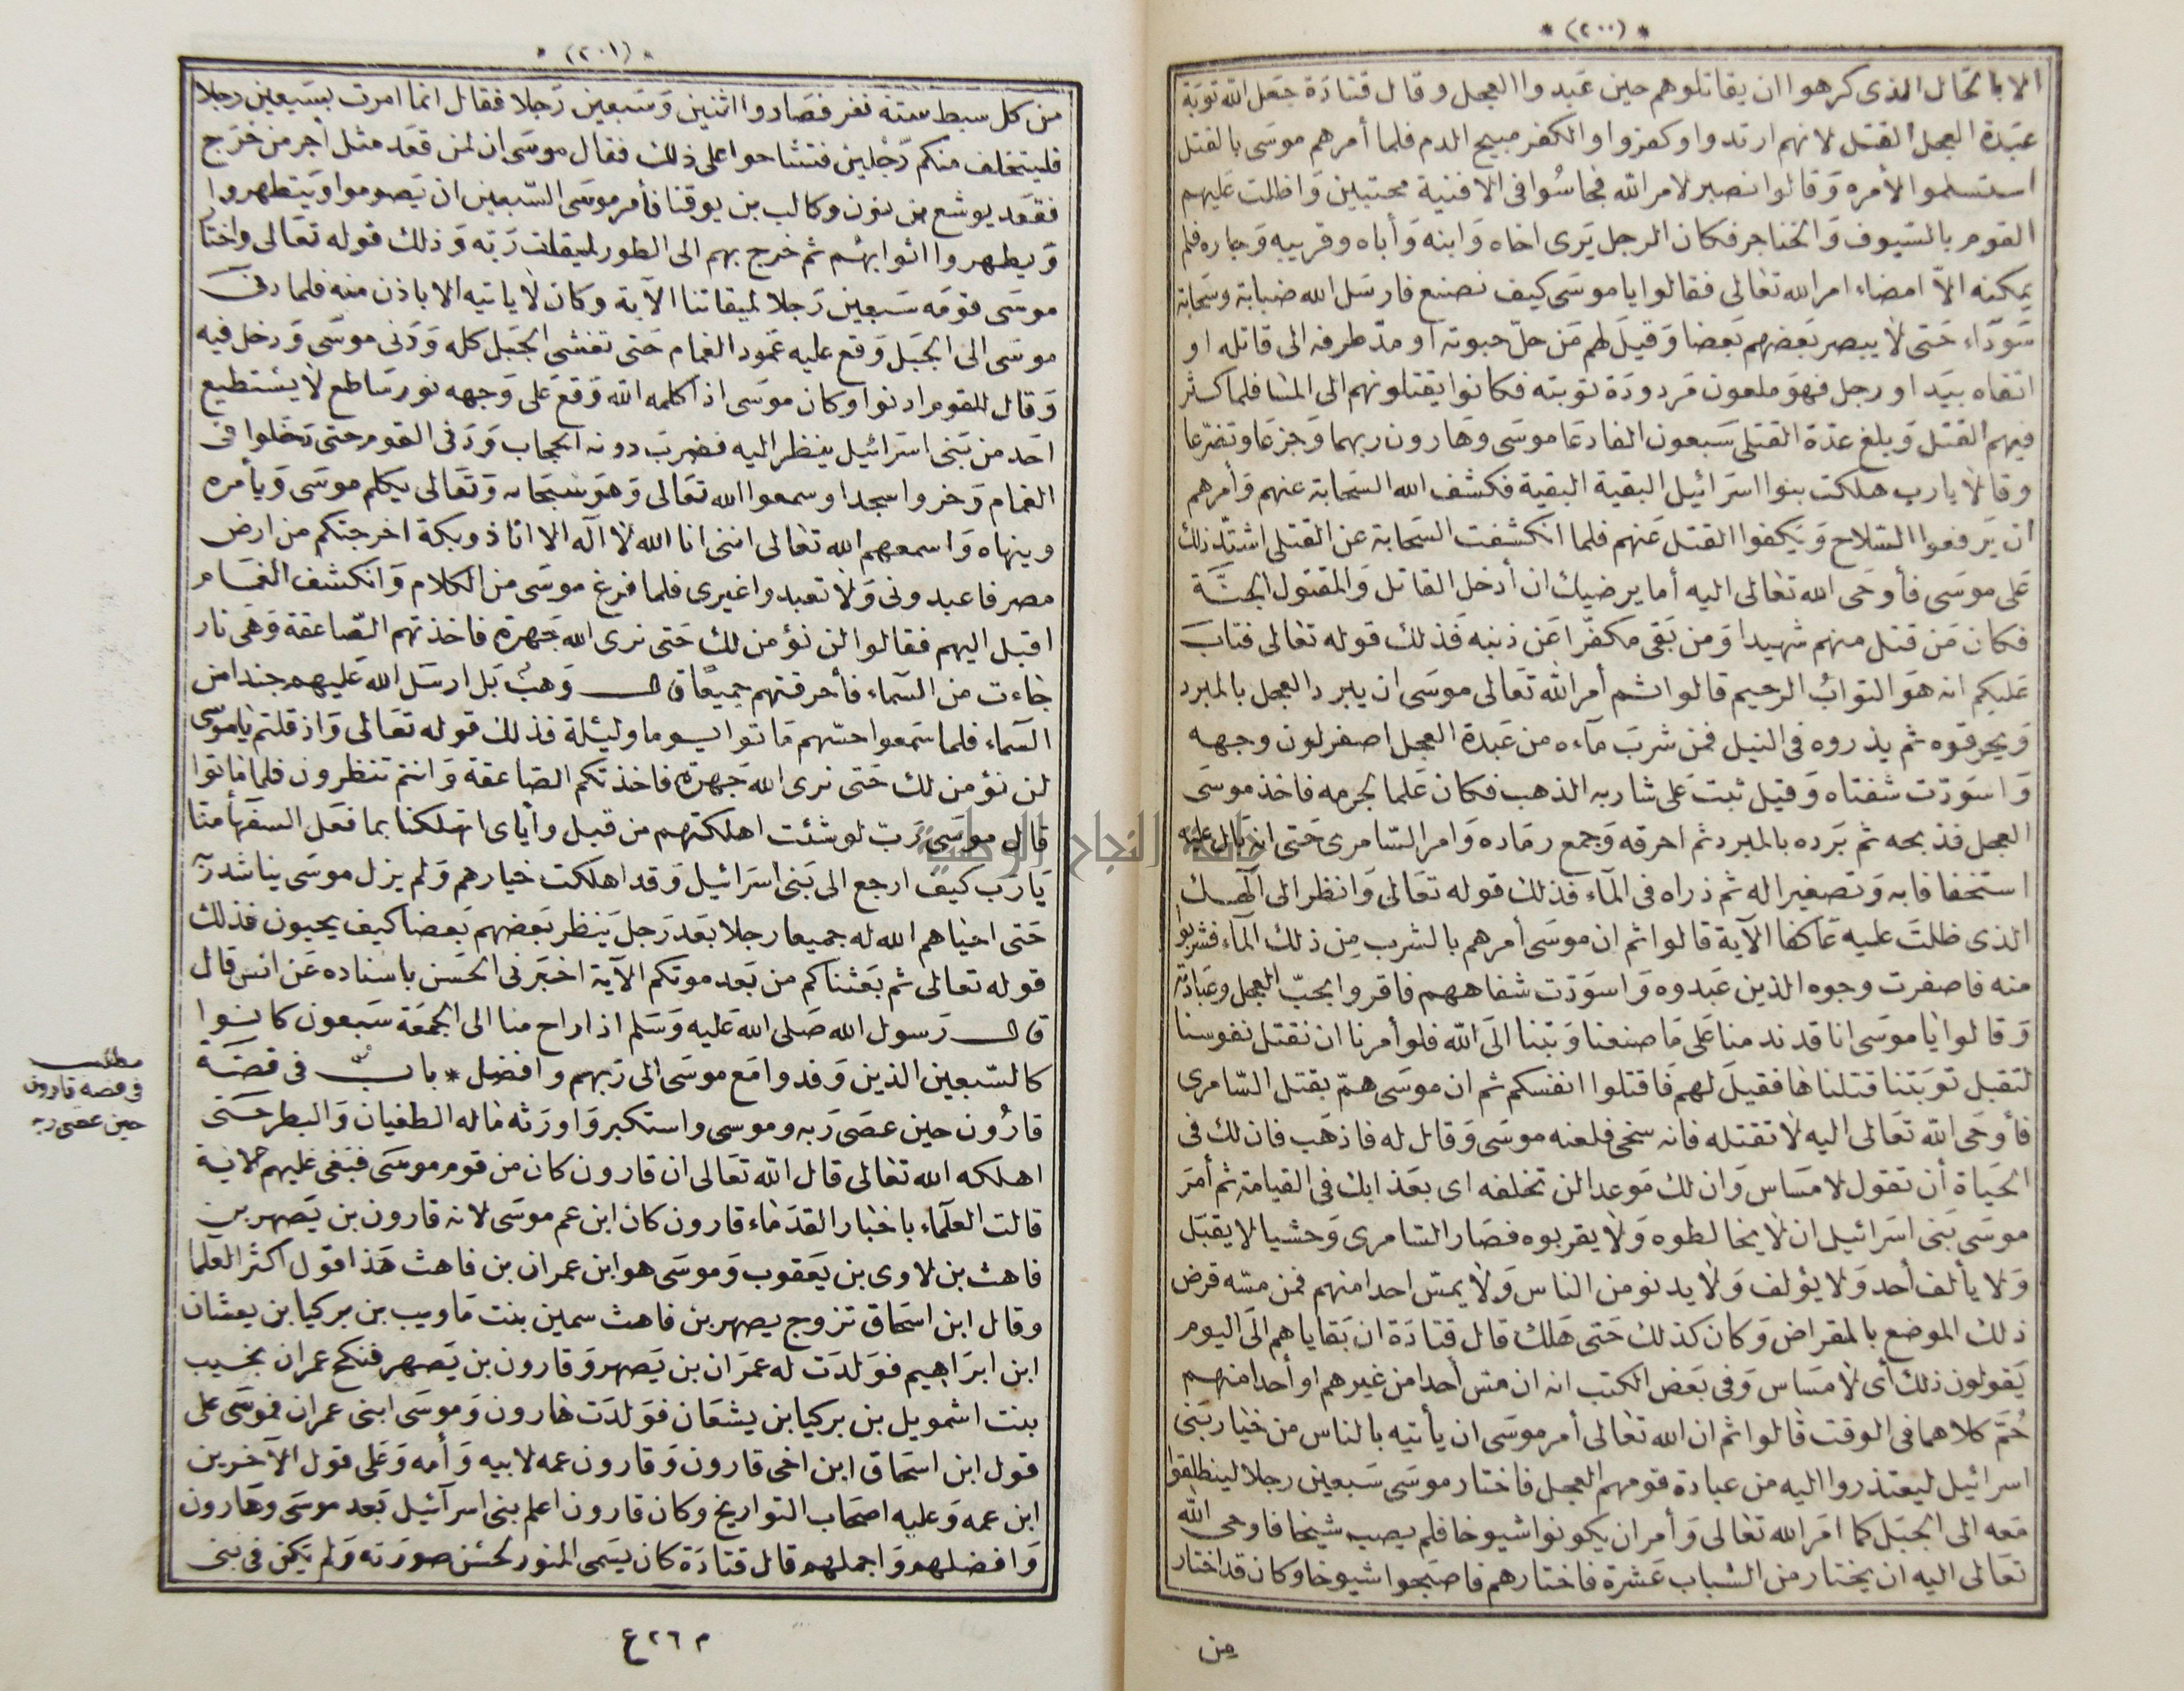 * (٢٠٠) *
الا بالحال الذى كرهوا ان يقاتلوهم حين عبدوا العجل وقال قتادة جعل الله توبة
عبدة العجل القتل لانهم ارتدوا وكفروا والكفر مبيح الدم فلما أمرهم موسى بالقتل
استسلموا لأمره وقالوا نصبر لامر الله فجاسوا فى الافنية محتبين واظلت عليهم
القوم بالسيوف والخناجر فكان الرجل يرى اخاه وابنه وأباه وقريبه وجاره فلم
يمكنه الا امضاء امر الله تعالى فقالوا يا موسى كيف نصنع فارسل الله ضبابة وسحابة
سوداء حتى لا يبصر بعضهم بعضا وقيل لهم من حل حبوته او مد طرفه الى قاتله او
اتقاه بيد او رجل فهو ملعون مردودة توبته فكانوا يقتلونهم الى المسا فلما كثر
فيهم القتل وبلغ عدة القتلى سبعون الفا دعا موسى وهارون ربهما وجزعا وتضرعا
وقالا يا رب هلكت بنوا اسرائيل البقية البقية فكشف الله السحابة عنهم وأمرهم
ان يرفعوا السلاح ويكفوا القتل عنهم فلما انكشفت السحابة عن القتلى اشتد ذلك
على موسى فأوحى الله تعالى اليه أما يرضيك ان أدخل القاتل والمقتول الجنة
فكان من قتل منهم شهيدا ومن بقى مكفرا عن ذنبه فذلك قوله تعالى فتاب
عليكم انه هو التواب الرحيم قالوا ثم أمر الله تعالى موسى ان يبرد العجل بالمبرد
ويحرقوه ثم يذروه فى النيل فمن شرب مآءه من عبدة العجل اصفر لون وجهه
واسودت شفتاه وقيل ثبت على شاربه الذهب فكان علما لجرمه فاخذ موسى
العجل فذبحه ثم برده بالمبرد ثم احرقه وجمع رماده وامر السامرى حتى انه بال عليه
استخفافا به وتصغيرا له ثم ذراه فى المآء فذلك قوله تعالى وانظر الى الهك
الذى ظلت عليه عاكفا الآية قالوا ثم ان موسى أمرهم بالشرب من ذلك المآء فشربوا
منه فاصفرت وجوه الذين عبدوه واسودت شفاههم فاقروا بحب العجل وعبادته
وقالوا يا موسى انا قد ندمنا على ما صنعنا وتبنا الى الله فلو أمرنا ان نقتل نفوسنا
لتقبل توبتنا قتلناها فقيل لهم فاقتلوا انفسكم ثم ان موسى هم بقتل السامرى
فأوحى الله تعالى اليه لا تقتله فانه سخى فلعنه موسى وقال له فاذهب فان لك فى
الحياة أن تقول لا مساس وان لك موعدا لن تخلفه اى بعذابك فى القيامة ثم أمر
موسى بنى اسرائيل ان لا يخالطوه ولا يقربوه فصار السامرى وحشيا لا يقبل
ولا يألف أحد ولا يؤلف ولا يدنو من الناس ولا يمس احدا منهم فمن مسه قرض
ذلك الموضع بالمقراض وكان كذلك حتى هلك قال قتادة ان بقاياهم الى اليوم
يقولون ذلك أى لا مساس وفى بعض الكتب انه ان مس أحدا من غيرهم او أحدا منهم
حُمّ كلاهما فى الوقت قالوا ثم ان الله تعالى أمر موسى ان يأتيه بالناس من خيار بنى
اسرائيل ليعتذروا اليه من عبادة قومهم العجل فاختار موسى سبعين رجلا لينطلقوا
معه الى الجبل كما امر الله تعالى وأمر ان يكونوا شيوخا فلم يصب شيخا فاوحى الله
تعالى اليه ان يختار من الشباب عشرة فاختارهم فاصبحوا شيوخا وكان قد اختار
من
* (٢٠١) *
من كل سبط ستة نفر فصاروا اثنين وسبعين رجلا فقال انما امرت بسبعين رجلا
فليتخلف منكم رجلين فتشاحوا على ذلك فقال موسى ان لمن قعد مثل أجر من خرج
فقعد يوشع بن نون وكالب بن يوقنا فأمر موسى السبعين ان يصوموا ويتطهروا
ويطهروا اثوابهم ثم خرج بهم الى الطور لميقات ربه وذلك قوله تعالى واختار
موسى قومه سبعين رجلا لميقاتنا الآية وكان لا ياتيه الا باذن منه فلما دنى
موسى الى الجبل وقع عليه عمود الغمام حتى تغشى الجبل كله ودنى موسى ودخل فيه
وقال للقوم ادنوا وكان موسى اذا كلمه الله وقع على وجهه نور ساطع لا يستطيع
احد من بنى اسرائيل ينظر اليه فضرب دونه الحجاب ودنى القوم حتى دخلوا فى
الغمام وخروا سجدا وسمعوا الله تعالى وهو سبحانه وتعالى يكلم موسى ويأمره
وينهاه واسمعهم الله تعالى اننى انا الله لا اله الا انا ذو بكة اخرجتكم من ارض
مصر فاعبدونى ولا تعبدوا غيرى فلما فرغ موسى من الكلام وانكشف الغمام
اقبل اليهم فقالوا لن نؤمن لك حتى نرى الله جهرة فاخذتهم الصاعقة وهى نار
جاءت من السمآء فأحرقتهم جميعا قال وهب بل ارسل الله عليهم جندا من
السماء فلما سمعوا حسهم ماتوا يوما وليلة فذلك قوله تعالى واذ قلتم يا موسى
لن نؤمن لك حتى نرى الله جهرة فاخذتكم الصاعقة وانتم تنظرون فلما ماتوا
قال موسى رب لو شئت اهلكتهم من قبل وأياى اتهلكنا بما فعل السفهآ منا
يا رب كيف ارجع الى بنى اسرائيل وقد اهلكت خيارهم ولم يزل موسى يناشد ربه
حتى احياهم الله له جميعا رجلا بعد رجل ينظر بعضهم بعضا كيف يحيون فذلك
قوله تعالى ثم بعثناكم من بعد موتكم الآية اخبرنى الحسن باسناده عن انس قال
قال رسول الله صلى الله عليه وسلم اذا راح منا الى الجمعة سبعون كانوا
كالسبعين الذين وفدوا مع موسى الى ربهم وافضل * باب فى قصة
قارون حين عصى ربه وموسى واستكبر واورثه ماله الطغيان والبطر حتى
اهلكه الله تعالى قال الله تعالى ان قارون كان من قوم موسى فبغى عليهم الاية
قالت العلماء باخبار القدماء قارون كان ابن عم موسى لانه قارون بن يصهر بن
قاهث بن لاوى بن يعقوب وموسى هو ابن عمران بن قاهث هذا قول اكثر العلما
وقال ابن اسحاق تزوج يصهر بن قاهث سمين بنت ماويب بن بركيا بن يعشان
ابن ابراهيم فولدت له عمران بن يصهر وقارون بن يصهر فنكح عمران بخيب
بنت اشمويل بن بركيا بن يشعان فولدت هارون وموسى ابنى عمران فموسى على
قول ابن اسحاق ابن اخى قارون وقارون عمه لابيه وأمه وعلى قول الآخرين
ابن عمه وعليه اصحاب التواريخ وكان قارون اعلم بنى اسرآئيل بعد موسى وهارون
وافضلهم واجملهم قال قتادة كان يسمى المنور لحسن صورته ولم يكن فى بنى
مطلب
فى قصة قارون
حين عصى ربه
م ٢٦ ع
جامعة النجاح الوطنية